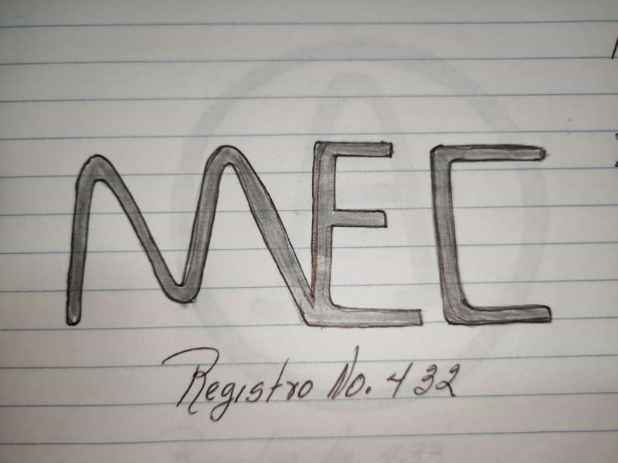 MEC
Registro No. 432